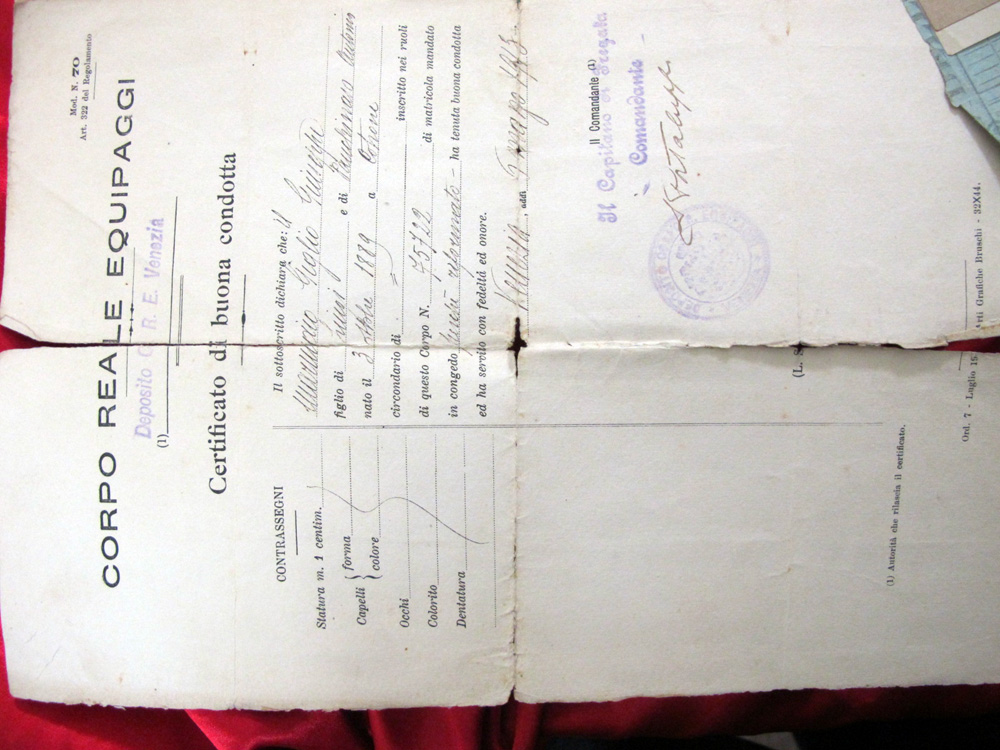 Mod. N. 70
Art. 322 del Regolamento
CORPO REALE EQUIPAGGI
Deposito C. R. E. Venezia
(1)
Certificato di buona condotta
CONTRASSEGNI
Statura m. 1 centim.
Capelli { forma
colore
Occhi
Colorito
Dentatura
Il sottoscritto dichiara che: il
Giglio Giuseppe
figlio di Luigi e di
nato il 3 ottobre 1889 a
circondario di inscritto nei ruoli
di questo Corpo N. 75722 di matricola mandato
in congedo perchè riformato - ha tenuta buona condotta
ed ha servito con fedeltà ed onore.
Venezia, addì 7 maggio 1913
Il Comandante (1)
Il Capitano di Fregata
Comandante
(L. S
(1) Autorità che rilascia il certificato.
Ord. 7 - Luglio 15
Arti Grafiche Bruschi - 32X44.